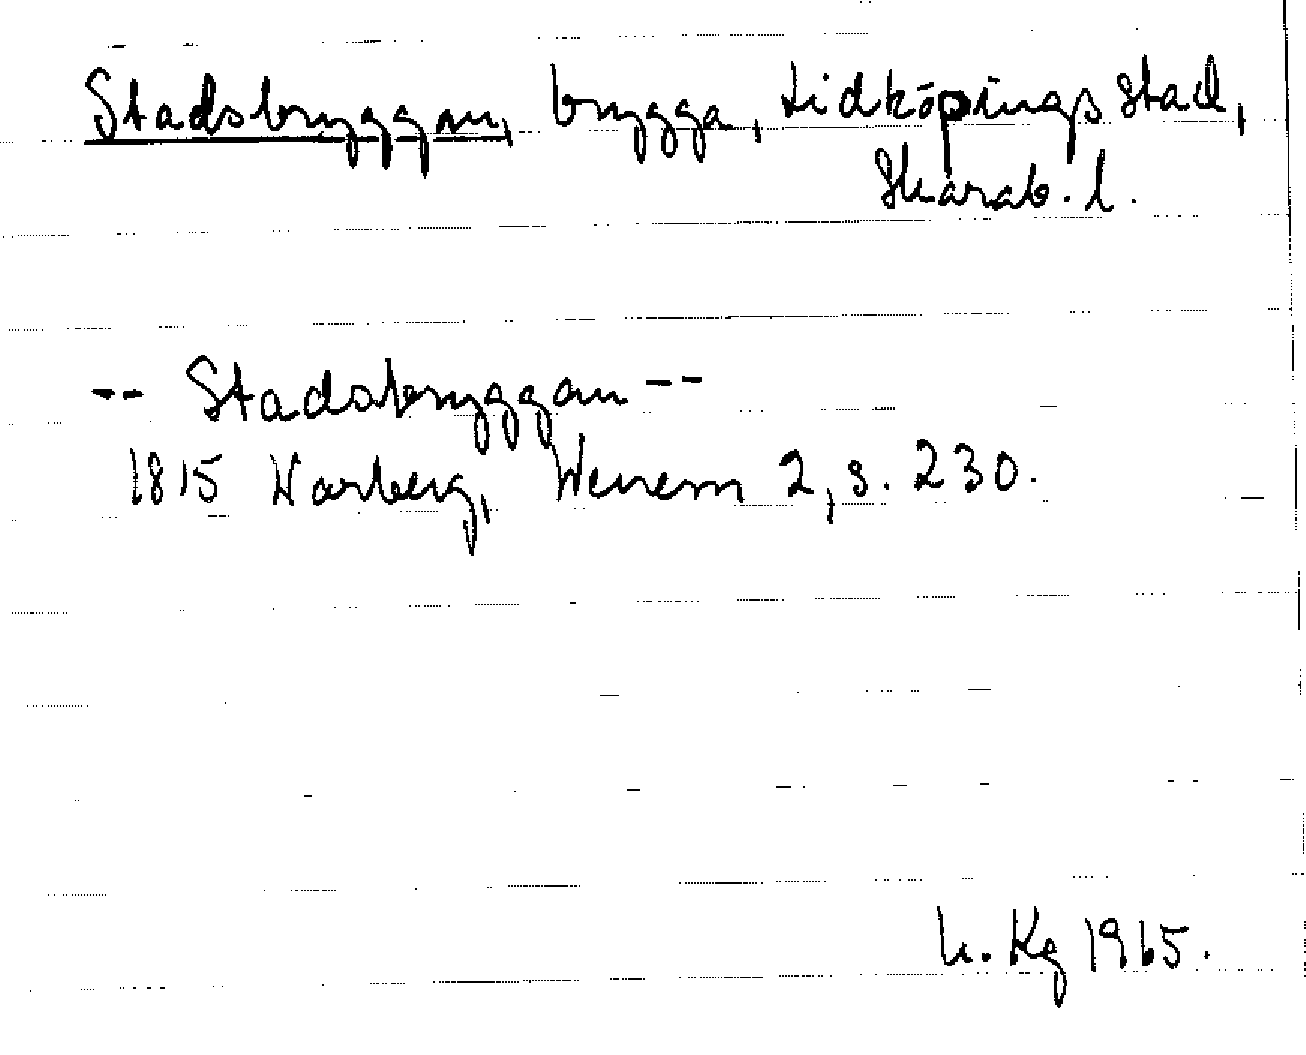 Stadsbryggan, brygga, Lidköpings stad,
Skarab. l.
-- Stadsbryggan --
1815 Warberg, Wenern 2, s. 230.
h. Kg 1965.